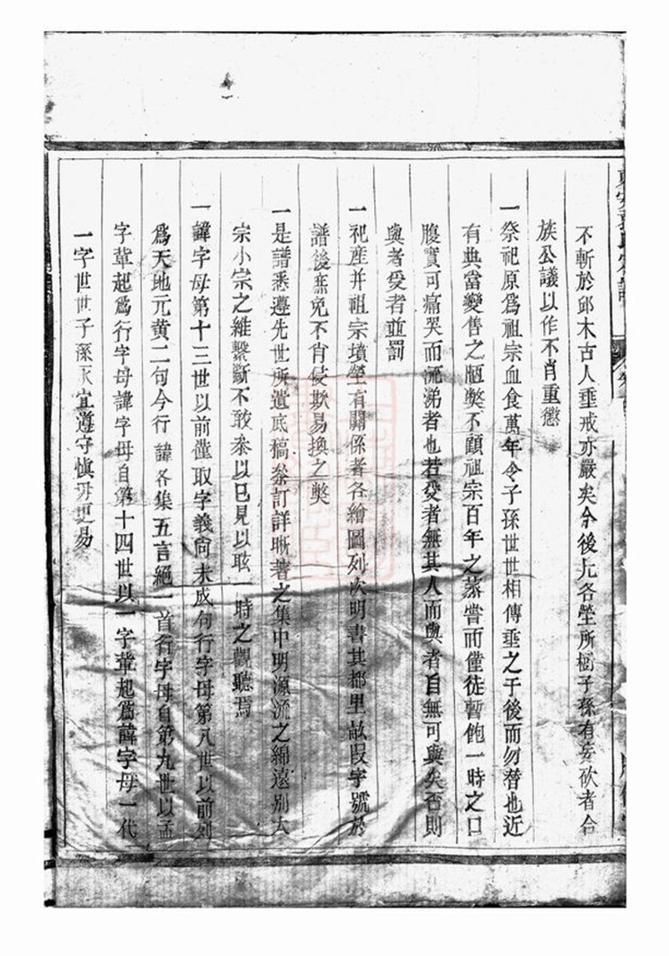 不斬於邱木古人垂戒亦嚴矣今後凡各塋所樹子孫有妄砍者合
族公議以作不肖重懲
一祭祀原為祖宗血食萬年令子孫世世相傳垂之于後而勿替也近
有典當變售之陋獘不顧祖宗百年之蒸嘗而僅徒暫飽一時之口
腹實可痛哭而流涕者也若受者無其人而與者自無可與矣否則
與者受者並罰
一祀產并祖宗墳塋有關係者各繪圖列次明書其都里畝叚字號於
譜後庶免不肖侵欺易換之獘
一是譜悉遵先世所遺底稿叅訂詳晰著之集中明源流之綿遠別大
宗小宗之維繫斷不敢叅以已見以眩一時之觀聽焉
一諱字母第十三世以前僅取字義尚未成句行字母第八世以前列
為天地元黃二句今行諱各集五言絕一首行字母自第九世以孟
字軰起為行字母諱字母自第十四世以一字軰起為諱字母一代
一字世世子孫永宜遵守慎毋更易